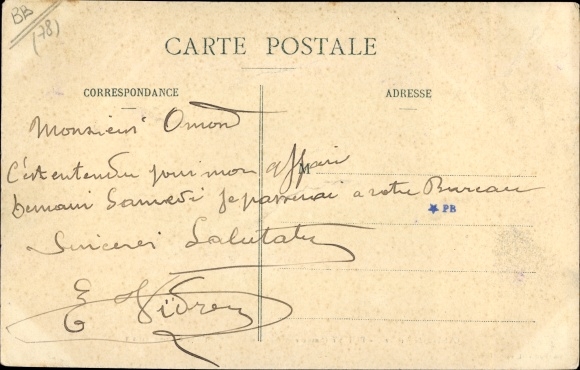 BB
(78)
CARTE POSTALE
CORRESPONDANCE
ADRESSE
Monsieur Omont
C'est entendu pour mon affaire
M
Demain Samedi je passerai a votre Bureau
★ PB
Sinceres Salutats
E